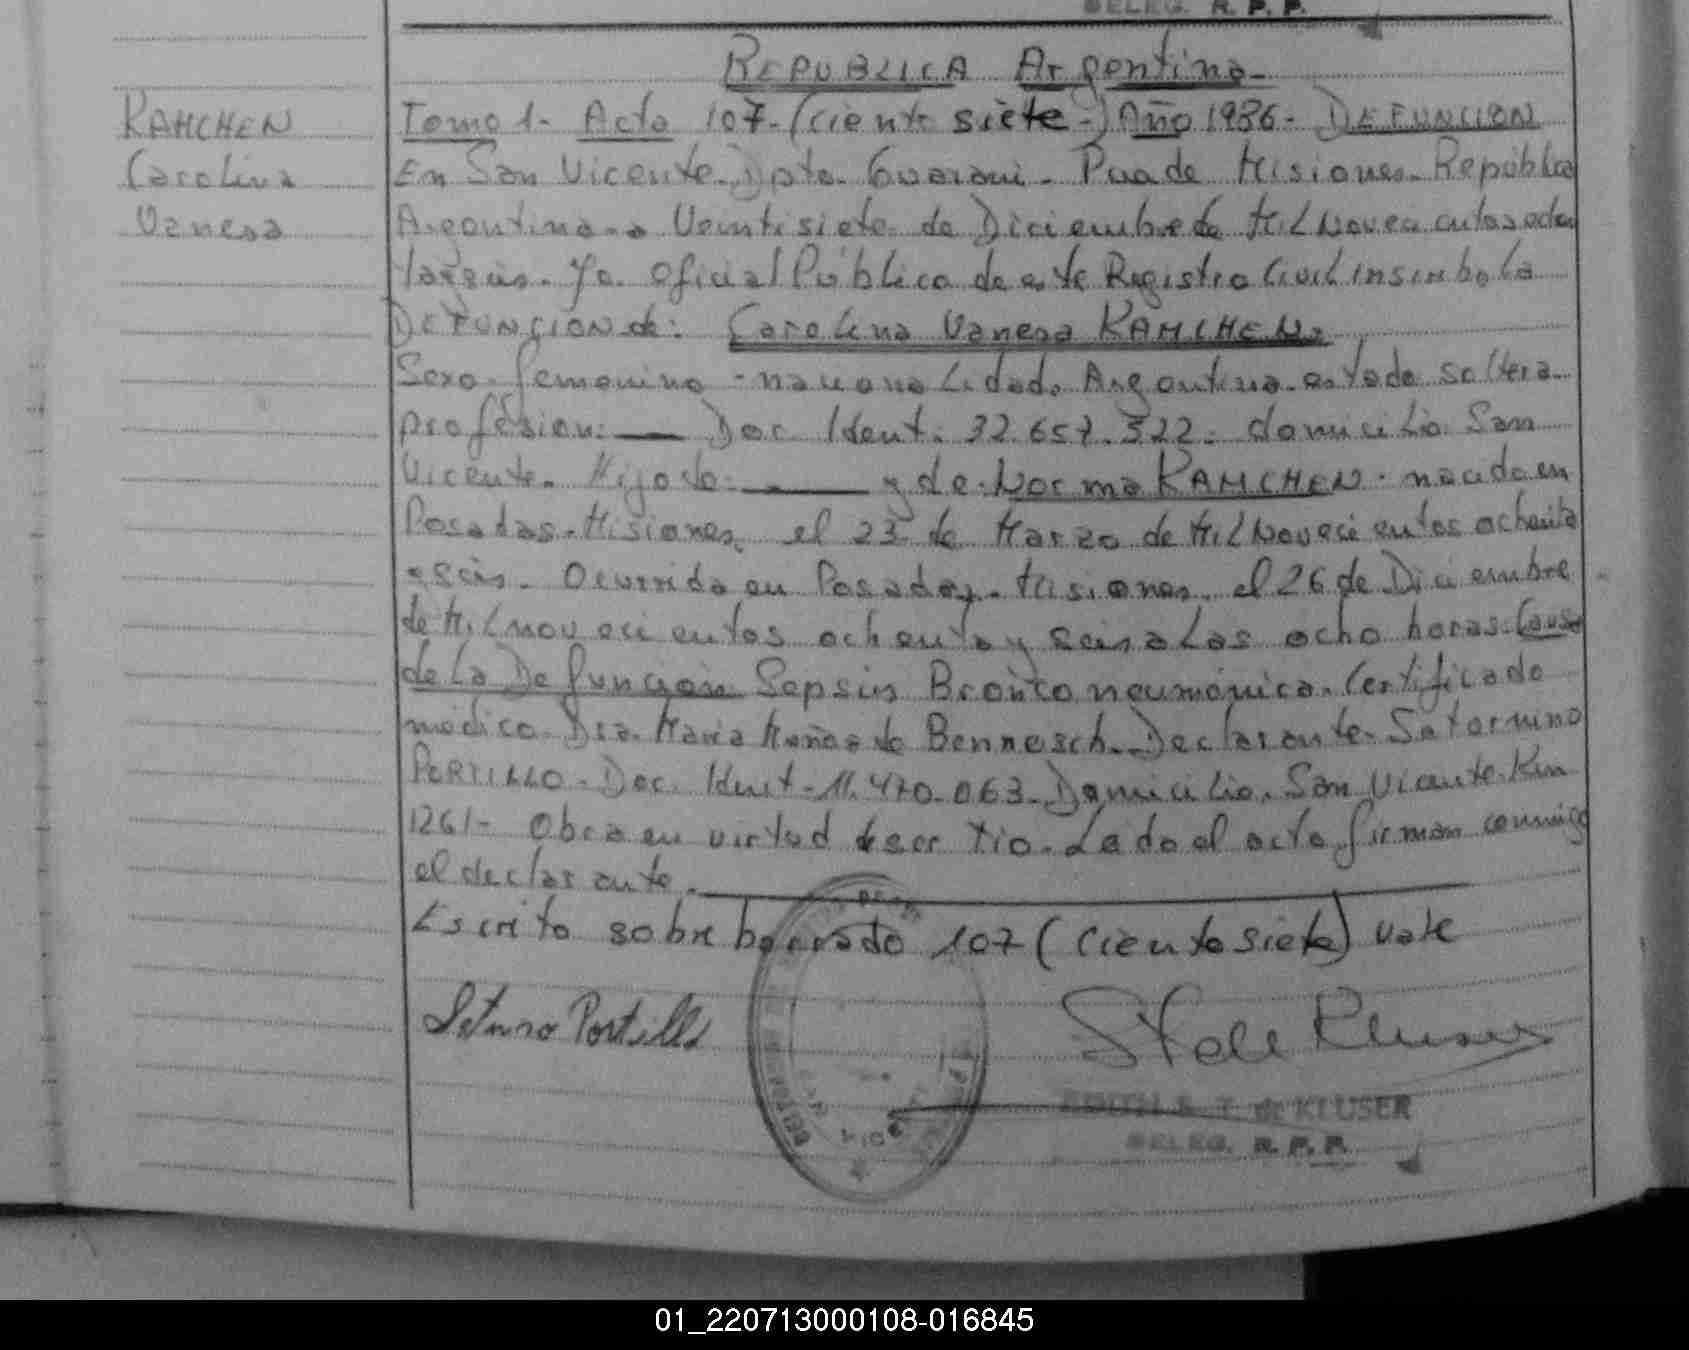 DELEG. R. P. P.
REPUBLICA Argentina-
KAMCHEN
Carolina
Vanesa
Tomo 1- Acta 107-(ciento siete-) Año 1986- DEFUNCION
En San Vicente. Dpto. Guarani. Pcia de Misiones. República
Argentina. a Veintisiete de Diciembre de Mil Novecientos ochen
tayseis. Yo. Oficial Público de este Registro Civil inscribo la
DEFUNCION de: Carolina Vanesa KAMCHEN.
Sexo. femenino - nacionalidad. Argentina. estado soltera.
profesion: — Doc. Ident. 32.657.322. domicilio San
Vicente. Hija de: — y de Norma KAMCHEN. nacida en
Posadas-Misiones. el 23 de Marzo de Mil Novecientos ochenta
e seis. Ocurrida en Posadas. Misiones. el 26 de Diciembre
de Mil novecientos ochenta y seis a las ocho horas. Causa
de la Defuncion Sepsis Bronconeumónica. Certificado
médico. Dra. Maria Muñoz de Bennesch. Declarante. Saturnino
PORTILLO. Doc. Ident - 11.470.063. Domicilio. San Vicente. Km
1261- Obra en virtud de ser Tio. Leido el acta firman conmigo
el declarante.
Escrito sobre borrado 107 (ciento siete) vale
Portillo
EDITH S. T. de KLUSER
DELEG. R. P. P.
01_220713000108-016845